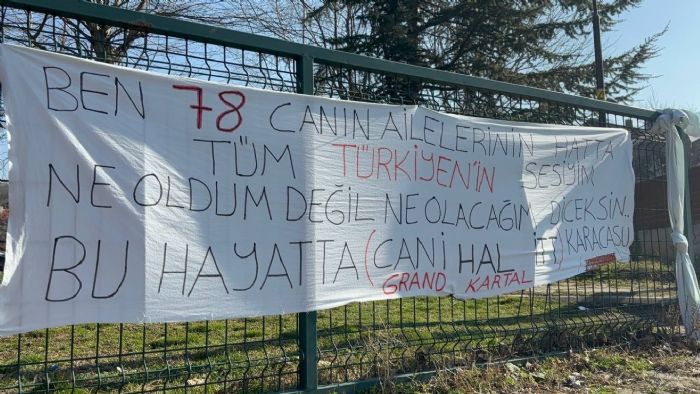 BEN 78 CANIN AİLELERİNİN HATTA
TÜM TÜRKİYEN'İN SESİYİM
NE OLDUM DEĞİL NE OLACAĞIM DİCEKSİN..
BU HAYATTA (CANİ HAL T) KARACASU
GRAND KARTAL